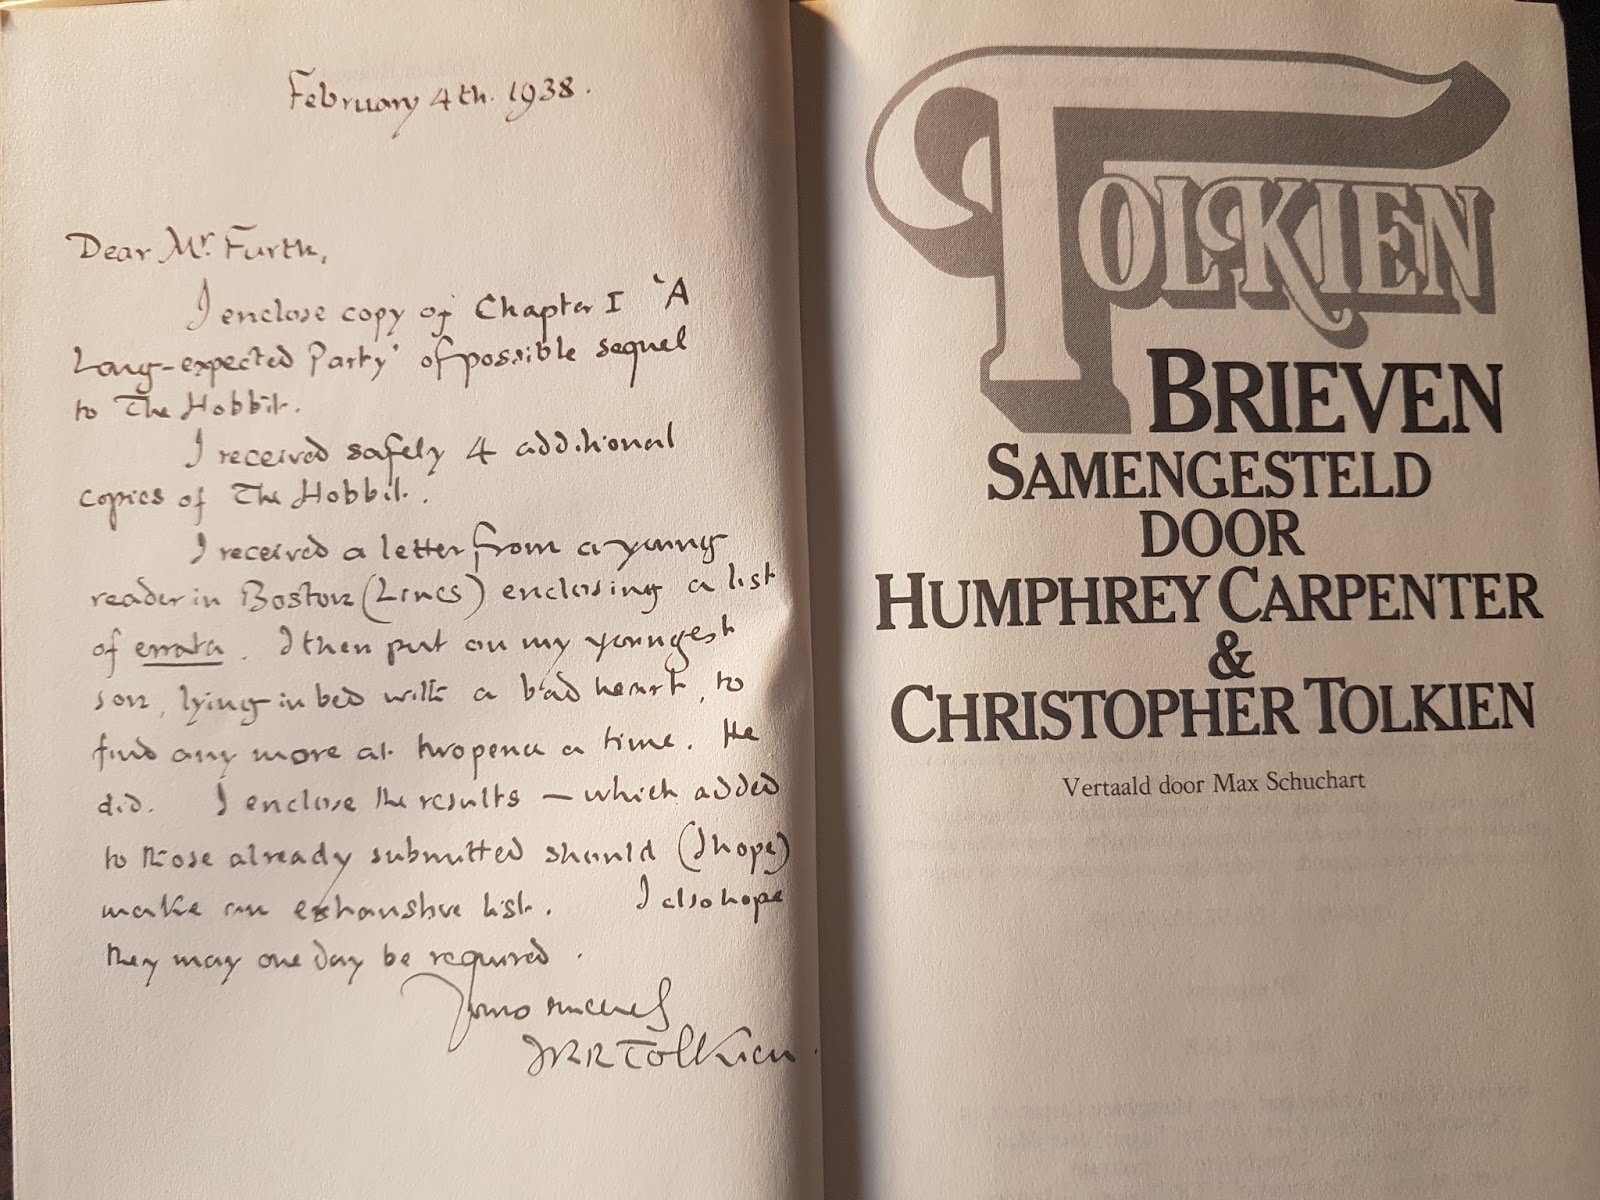 February 4th. 1938.
Dear Mr. Furth,
I enclose copy of Chapter I 'A
Long-expected Party' of possible sequel
to The Hobbit.
I received safely 4 additional
copies of The Hobbit.
I received a letter from a young
reader in Boston (Lincs) enclosing a list
of errata. I then put on my youngest
son, lying in bed with a bad heart, to
find any more at twopence a time. He
did. I enclose the results – which added
to those already submitted should (I hope)
make an exhaustive list. I also hope
they may one day be required.
Yours sincerely
JRRTolkien.
TOLKIEN
BRIEVEN
SAMENGESTELD
DOOR
HUMPHREY CARPENTER
&
CHRISTOPHER TOLKIEN
Vertaald door Max Schuchart